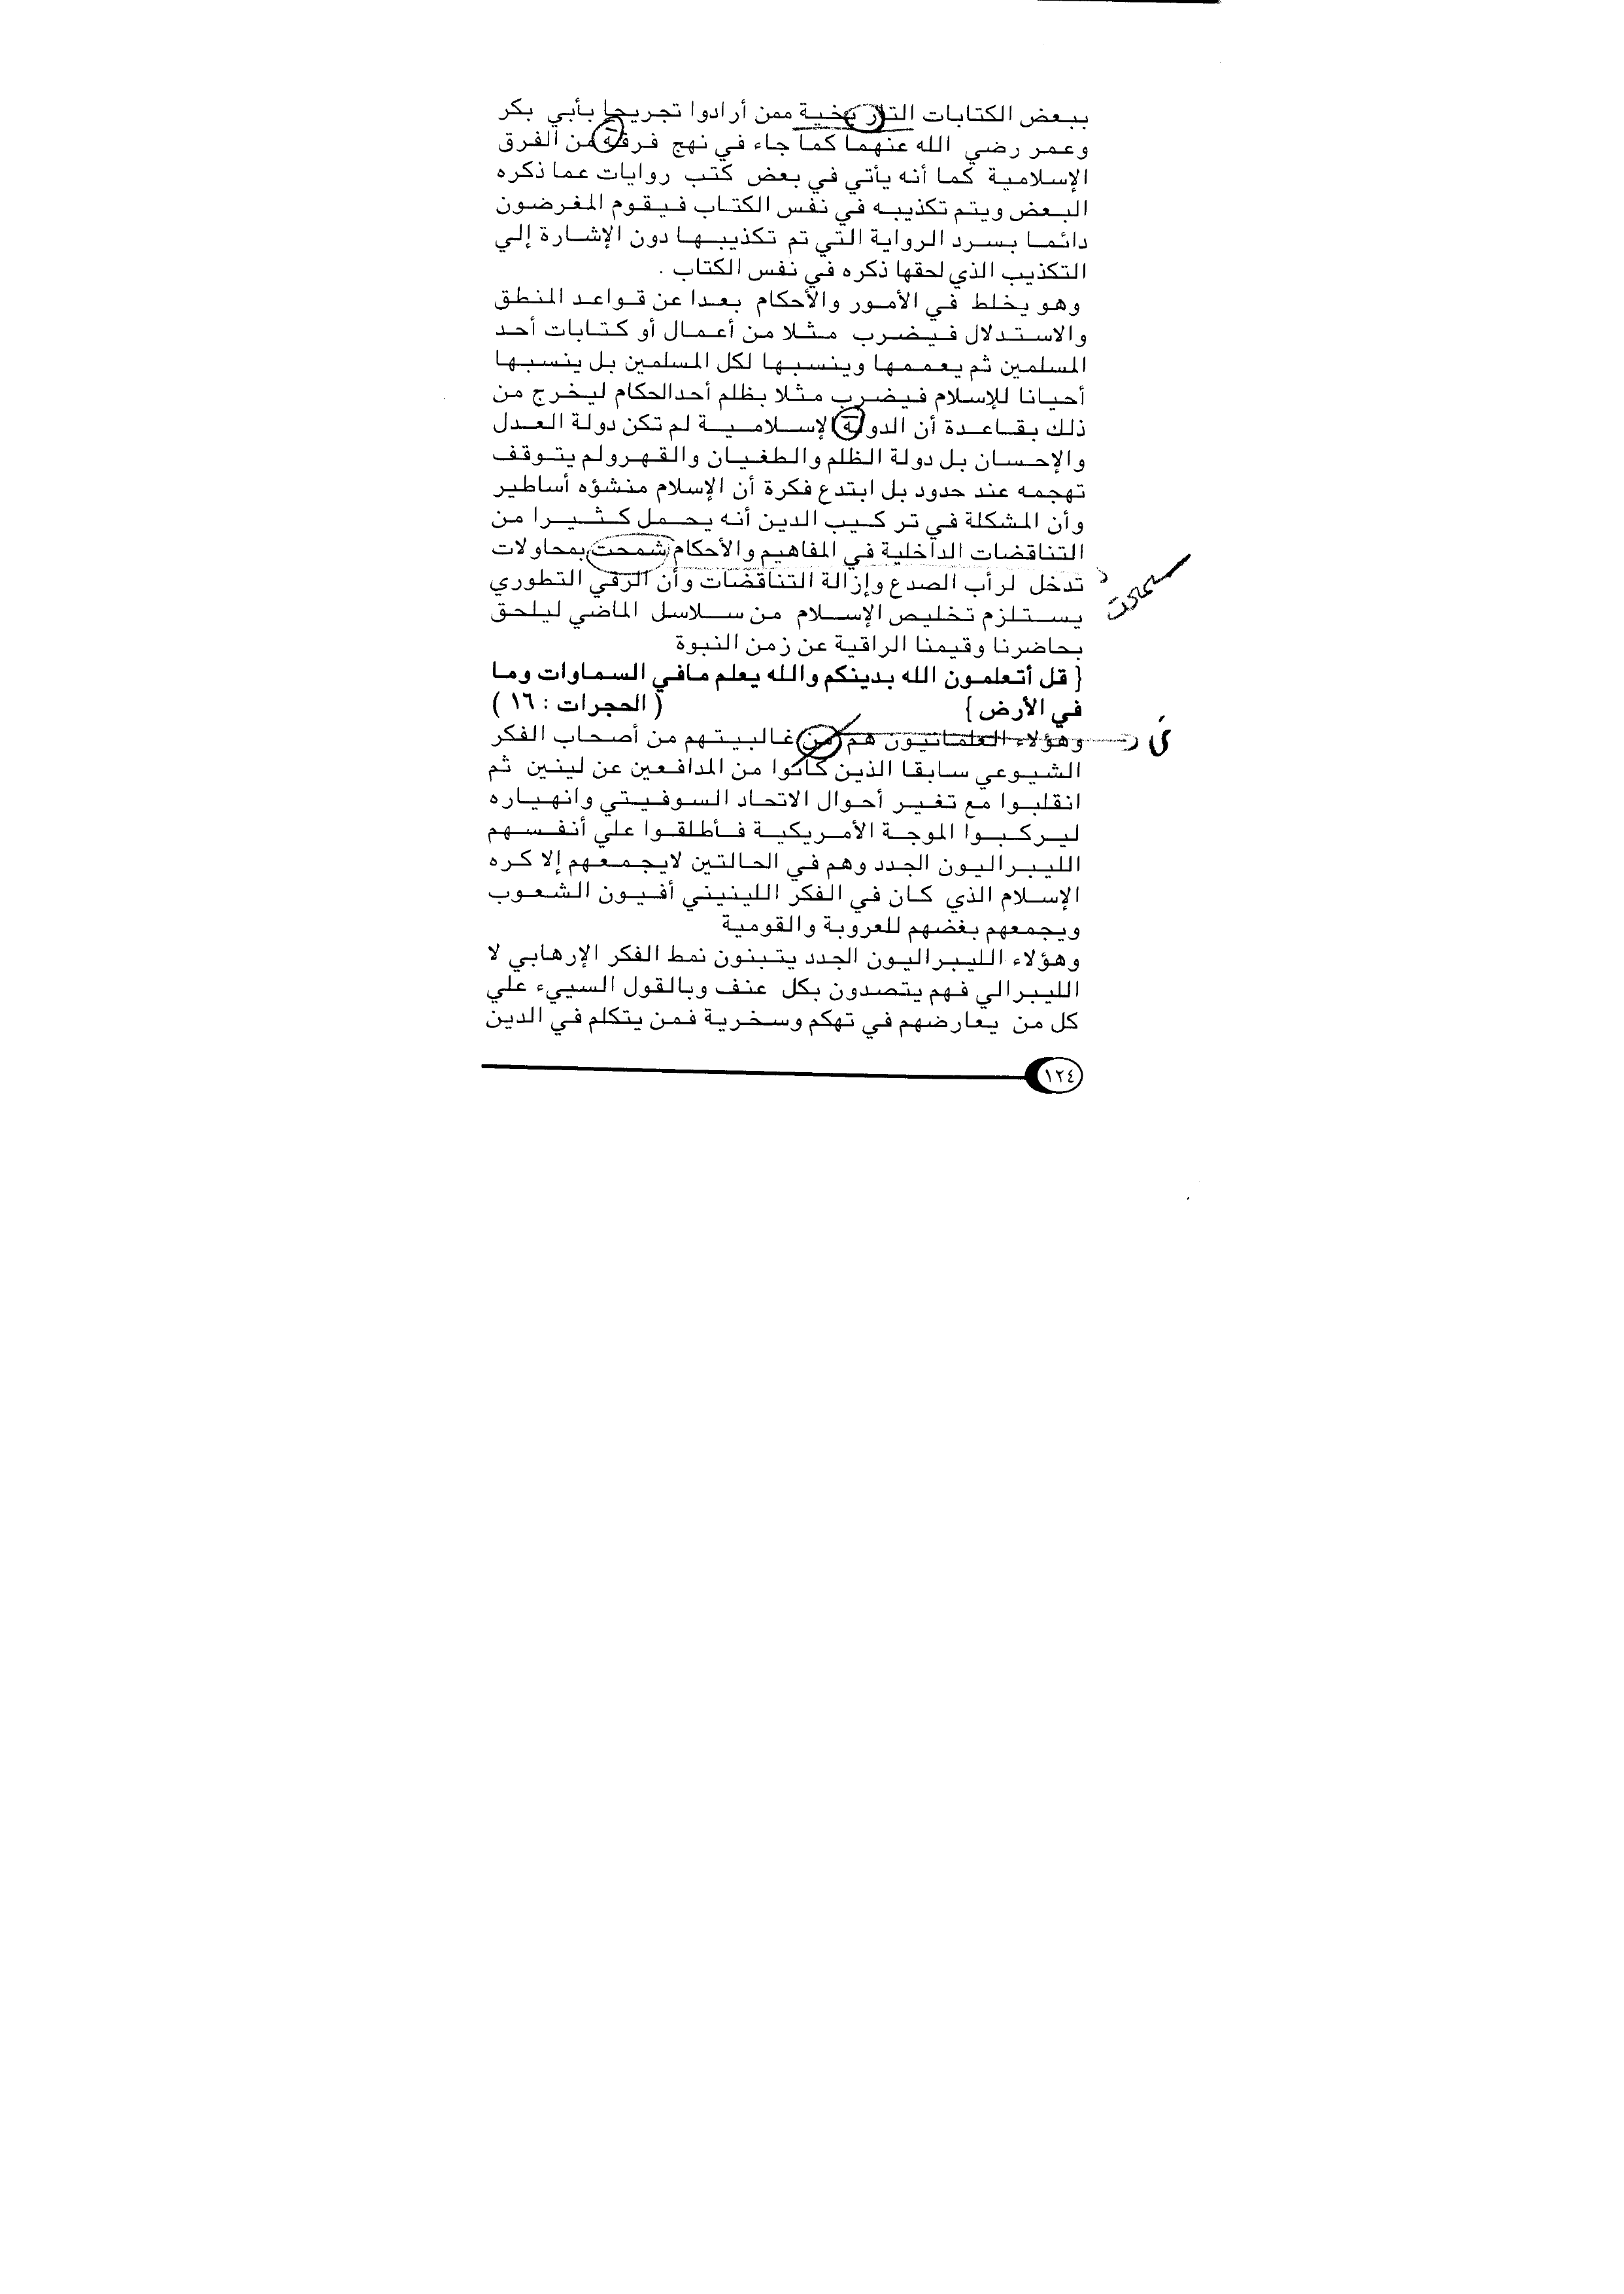 ببعض الكتابات التاريخية ممن أرادوا تجريحا بأبي بكر
وعمر رضي الله عنهما كما جاء في نهج فرقة من الفرق
الإسلامية كما أنه يأتي في بعض كتب روايات عما ذكره
البعض ويتم تكذيبه في نفس الكتاب فيقوم المغرضون
دائما بسرد الرواية التي تم تكذيبها دون الإشارة إلي
التكذيب الذي لحقها ذكره في نفس الكتاب .
وهو يخلط في الأمور والأحكام بعدا عن قواعد المنطق
والاستدلال فيضرب مثلا من أعمال أو كتابات أحد
المسلمين ثم يعممها وينسبها لكل المسلمين بل ينسبها
أحيانا للإسلام فيضرب مثلا بظلم أحدالحكام ليخرج من
ذلك بقاعدة أن الدولة لإسلامية لم تكن دولة العدل
والإحسان بل دولة الظلم والطغيان والقهرولم يتوقف
تهجمه عند حدود بل ابتدع فكرة أن الإسلام منشؤه أساطير
وأن المشكلة في تركيب الدين أنه يحمل كثيرا من
التناقضات الداخلية في المفاهيم والأحكام شمحت بمحاولات
تدخل لرأب الصدع وإزالة التناقضات وأن الرقي التطوري
يستلزم تخليص الإسلام من سلاسل الماضي ليلحق
بحاضرنا وقيمنا الراقية عن زمن النبوة
{ قل أتعلمون الله بدينكم والله يعلم مافي السماوات وما
في الأرض } ( الحجرات : ١٦ )
وهؤلاء العلمانيون هم من غالبيتهم من أصحاب الفكر
الشيوعي سابقا الذين كانوا من المدافعين عن لينين ثم
انقلبوا مع تغير أحوال الاتحاد السوفيتي وانهياره
ليركبوا الموجة الأمريكية فأطلقوا علي أنفسهم
الليبراليون الجدد وهم في الحالتين لايجمعهم إلا كره
الإسلام الذي كان في الفكر اللينيني أفيون الشعوب
ويجمعهم بغضهم للعروبة والقومية
وهؤلاء الليبراليون الجدد يتبنون نمط الفكر الإرهابي لا
الليبرالي فهم يتصدون بكل عنف وبالقول السييء علي
كل من يعارضهم في تهكم وسخرية فمن يتكلم في الدين
١٢٤